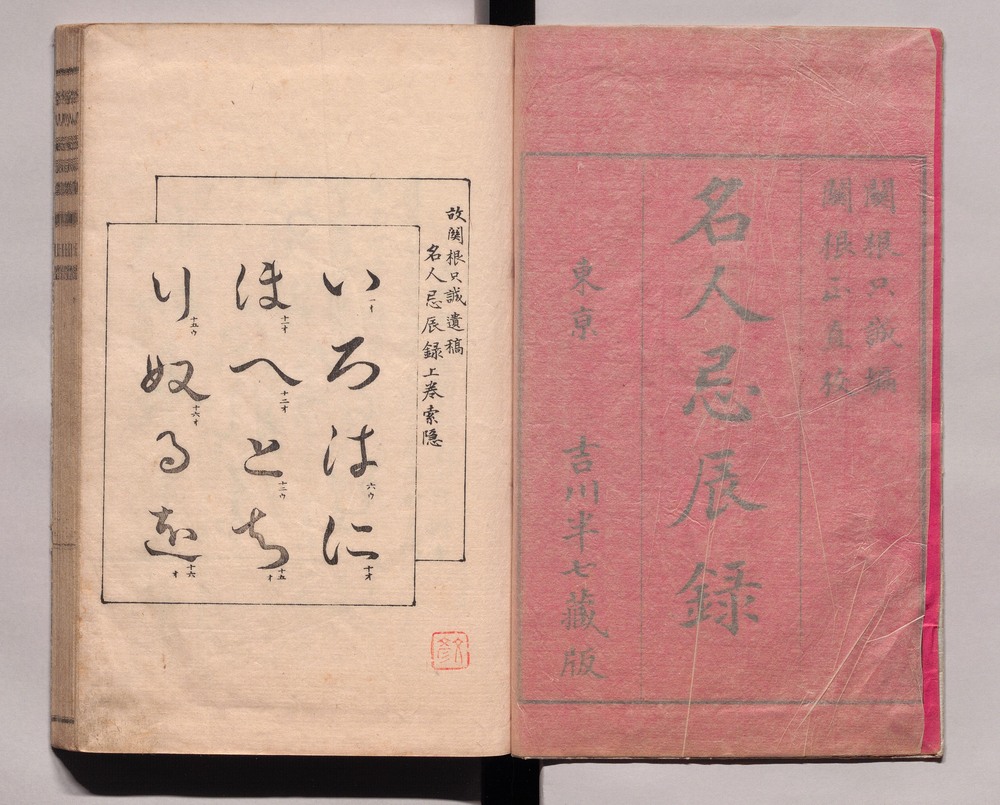 關根只誠編
關根正直校
名人忌辰録
東京　吉川半七藏版
故関根只誠遺稿
名人忌辰録上巻索隠
い一オ ろ は六ウ に十オ
ほ十一オ へ十二オ と十二ウ ち十五オ
り十五ウ ぬ十六オ る を十六オ